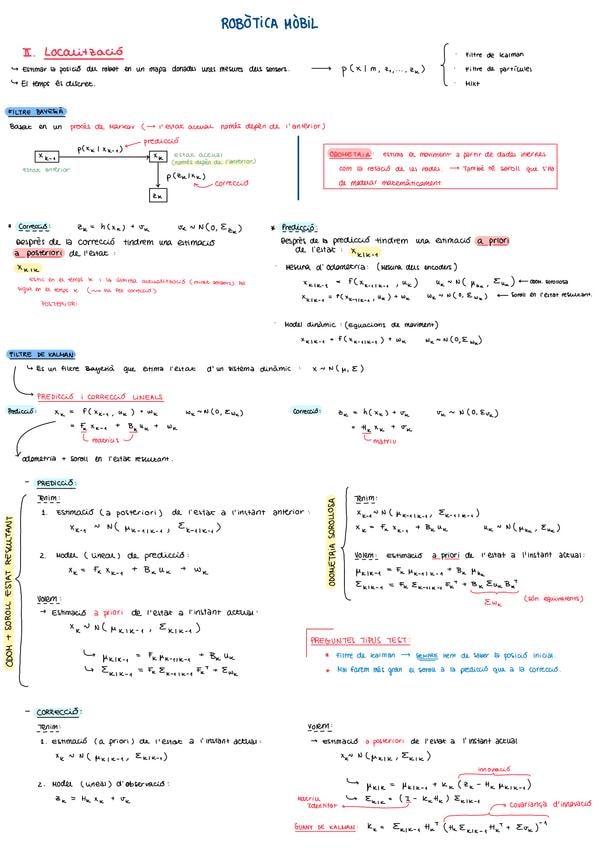 ROBÒTICA MÒBIL
II. Localització
↳ Estimar la posició del robot en un mapa donades unes mesures dels sensors. → p(x | m, z₁, ..., z_k)
· Filtre de Kalman
· Filtre de partícules
· Mixt
↳ El temps és discret.
FILTRE BAYESIÀ
Basat en un procés de Markov (→ l'estat actual només depèn de l'anterior)
p(x_k | x_{k-1}) predicció
x_{k-1} → x_k
estat anterior
estat actual
(només depèn de l'anterior)
p(z_k | x_k)
correcció
z_k
ODOMETRIA: estima el moviment a partir de dades internes
com la rotació de les rodes. → També té soroll que s'ha
de modelar matemàticament.
* Correcció: z_k = h(x_k) + v_k v_k ~ N(0, Σ_{z_k})
Després de la correcció tindrem una estimació
a posteriori de l'estat:
x_{k|k}
estic en el temps k i la última actualització (mirat sensors) ha
sigut en el temps k (→ ha fet correcció)
POSTERIORI
* Predicció:
Després de la predicció tindrem una estimació a priori
de l'estat: x_{k|k-1}
· Mesura d'odometria: (Mesura dels encoders)
x_{k|k-1} = f(x_{k-1|k-1}, u_k) u_k ~ N(μ_{u_k}, Σ_{u_k}) ← odom. sorollosa
x_{k|k-1} = f(x_{k-1|k-1}, u_k) + w_k w_k ~ N(0, Σ_{w_k}) ← Soroll en l'estat resultant.
· Model dinàmic: (equacions de moviment)
x_{k|k-1} = f(x_{k-1|k-1}) + w_k w_k ~ N(0, Σ_{w_k})
FILTRE DE KALMAN
↳ És un filtre Bayesià que estima l'estat d'un sistema dinàmic: x ~ N(μ, Σ)
↳ PREDICCIÓ I CORRECCIÓ LINEALS
Predicció: x_k = f(x_{k-1}, u_k) + w_k w_k ~ N(0, Σ_{w_k})
= F_k x_{k-1} + B_k u_k + w_k
matrius
odometria + soroll en l'estat resultant.
Correcció: z_k = h(x_k) + v_k v_k ~ N(0, Σ_{v_k})
= H_k x_k + v_k
matriu
- PREDICCIÓ:
ODOM + SOROLL ESTAT RESULTANT
Tenim:
1. Estimació (a posteriori) de l'estat a l'instant anterior:
x_{k-1} ~ N(μ_{k-1|k-1}, Σ_{k-1|k-1})
2. Model (lineal) de predicció:
x_k = F_k x_{k-1} + B_k u_k + w_k
Volem:
→ Estimació a priori de l'estat a l'instant actual:
x_k ~ N(μ_{k|k-1}, Σ_{k|k-1})
↳ μ_{k|k-1} = F_k μ_{k-1|k-1} + B_k u_k
↳ Σ_{k|k-1} = F_k Σ_{k-1|k-1} F_k^T + Σ_{w_k}
ODOMETRIA SOROLLOSA
Tenim:
x_{k-1} ~ N(μ_{k-1|k-1}, Σ_{k-1|k-1})
x_k = F_k x_{k-1} + B_k u_k u_k ~ N(μ_{u_k}, Σ_{u_k})
Volem: estimació a priori de l'estat a l'instant actual:
μ_{k|k-1} = F_k μ_{k-1|k-1} + B_k μ_{u_k}
Σ_{k|k-1} = F_k Σ_{k-1|k-1} F_k^T + B_k Σ_{u_k} B_k^T
Σ_{w_k} (són equivalents)
PREGUNTES TIPUS TEST:
* Filtre de Kalman → SEMPRE hem de saber la posició inicial.
* Mai farem més gran el soroll a la predicció que a la correcció.
- CORRECCIÓ:
Tenim:
1. Estimació (a priori) de l'estat a l'instant actual:
x_k ~ N(μ_{k|k-1}, Σ_{k|k-1})
2. Model (lineal) d'observació:
z_k = H_k x_k + v_k
Volem:
→ Estimació a posteriori de l'estat a l'instant actual
x_k ~ N(μ_{k|k}, Σ_{k|k})
innovació
↳ μ_{k|k} = μ_{k|k-1} + K_k (z_k - H_k μ_{k|k-1})
↳ Σ_{k|k} = (I - K_k H_k) Σ_{k|k-1}
matriu identitat
covariança d'innovació
GUANY DE KALMAN: K_k = Σ_{k|k-1} H_k^T (H_k Σ_{k|k-1} H_k^T + Σ_{v_k})^{-1}